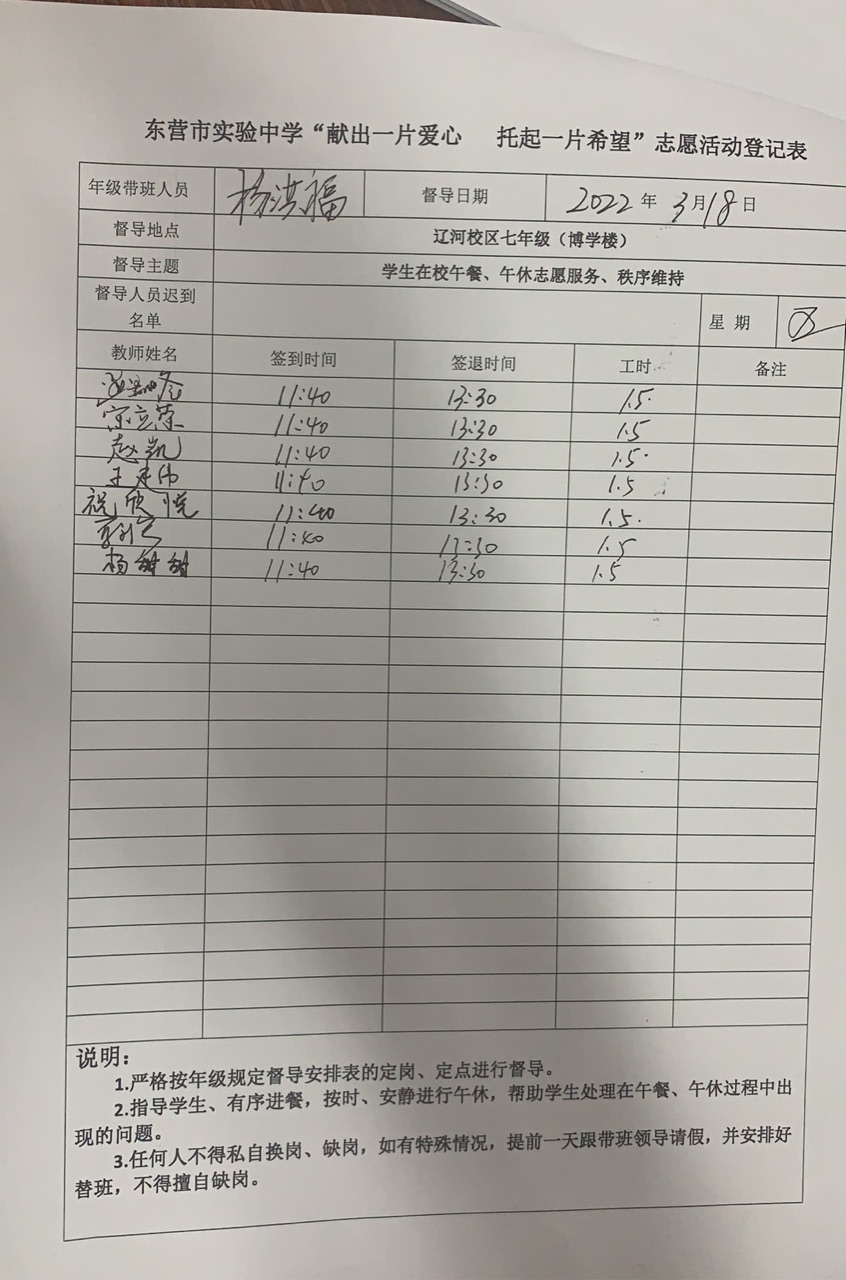 东营市实验中学“献出一片爱心 托起一片希望”志愿活动登记表
年级带班人员 杨洪福 督导日期 2022年3月18日
督导地点 辽河校区七年级（博学楼）
督导主题 学生在校午餐、午休志愿服务、秩序维持
督导人员迟到
名单 星期
教师姓名 签到时间 签退时间 工时 备注
11:40 13:30 1.5
宗立荣 11:40 13:30 1.5
赵凯 11:40 13:30 1.5
11:40 13:30 1.5
祝欣悦 11:40 13:30 1.5
11:40 13:30 1.5
杨甜甜 11:40 13:30 1.5
说明：
1.严格按年级规定督导安排表的定岗、定点进行督导。
2.指导学生、有序进餐，按时、安静进行午休，帮助学生处理在午餐、午休过程中出
现的问题。
3.任何人不得私自换岗、缺岗，如有特殊情况，提前一天跟带班领导请假，并安排好
替班，不得擅自缺岗。